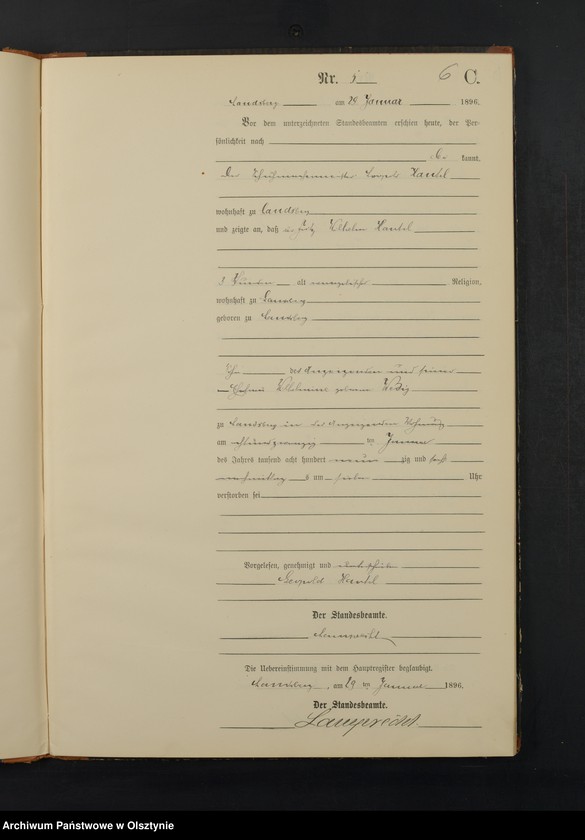 Nr. 5 6 C.
Landsberg am 29 Januar 1896.
Vor dem unterzeichneten Standesbeamten erschien heute, der Per-
sönlichkeit nach
be kannt,
der Schuhmachermeister Leopold Hantel
wohnhaft zu Landsberg
und zeigte an, daß Wilhelm Hantel
3 Stunden alt evangelischer Religion,
wohnhaft zu Landsberg
geboren zu Landsberg
Sohn des Anzeigenden und seiner
Ehefrau Wilhelmine geborene
zu Landsberg in des Anzeigenden Wohnung
am achtundzwanzigsten Januar
des Jahres tausend acht hundert neunzig und sechs
nachmittags um sieben Uhr
verstorben sei.
Vorgelesen, genehmigt und unterschrieben
Leopold Hantel
Der Standesbeamte.
Lamprecht
Die Uebereinstimmung mit dem Hauptregister beglaubigt.
Landsberg, am 29 ten Januar 1896.
Der Standesbeamte.
Lamprecht
Archiwum Państwowe w Olsztynie